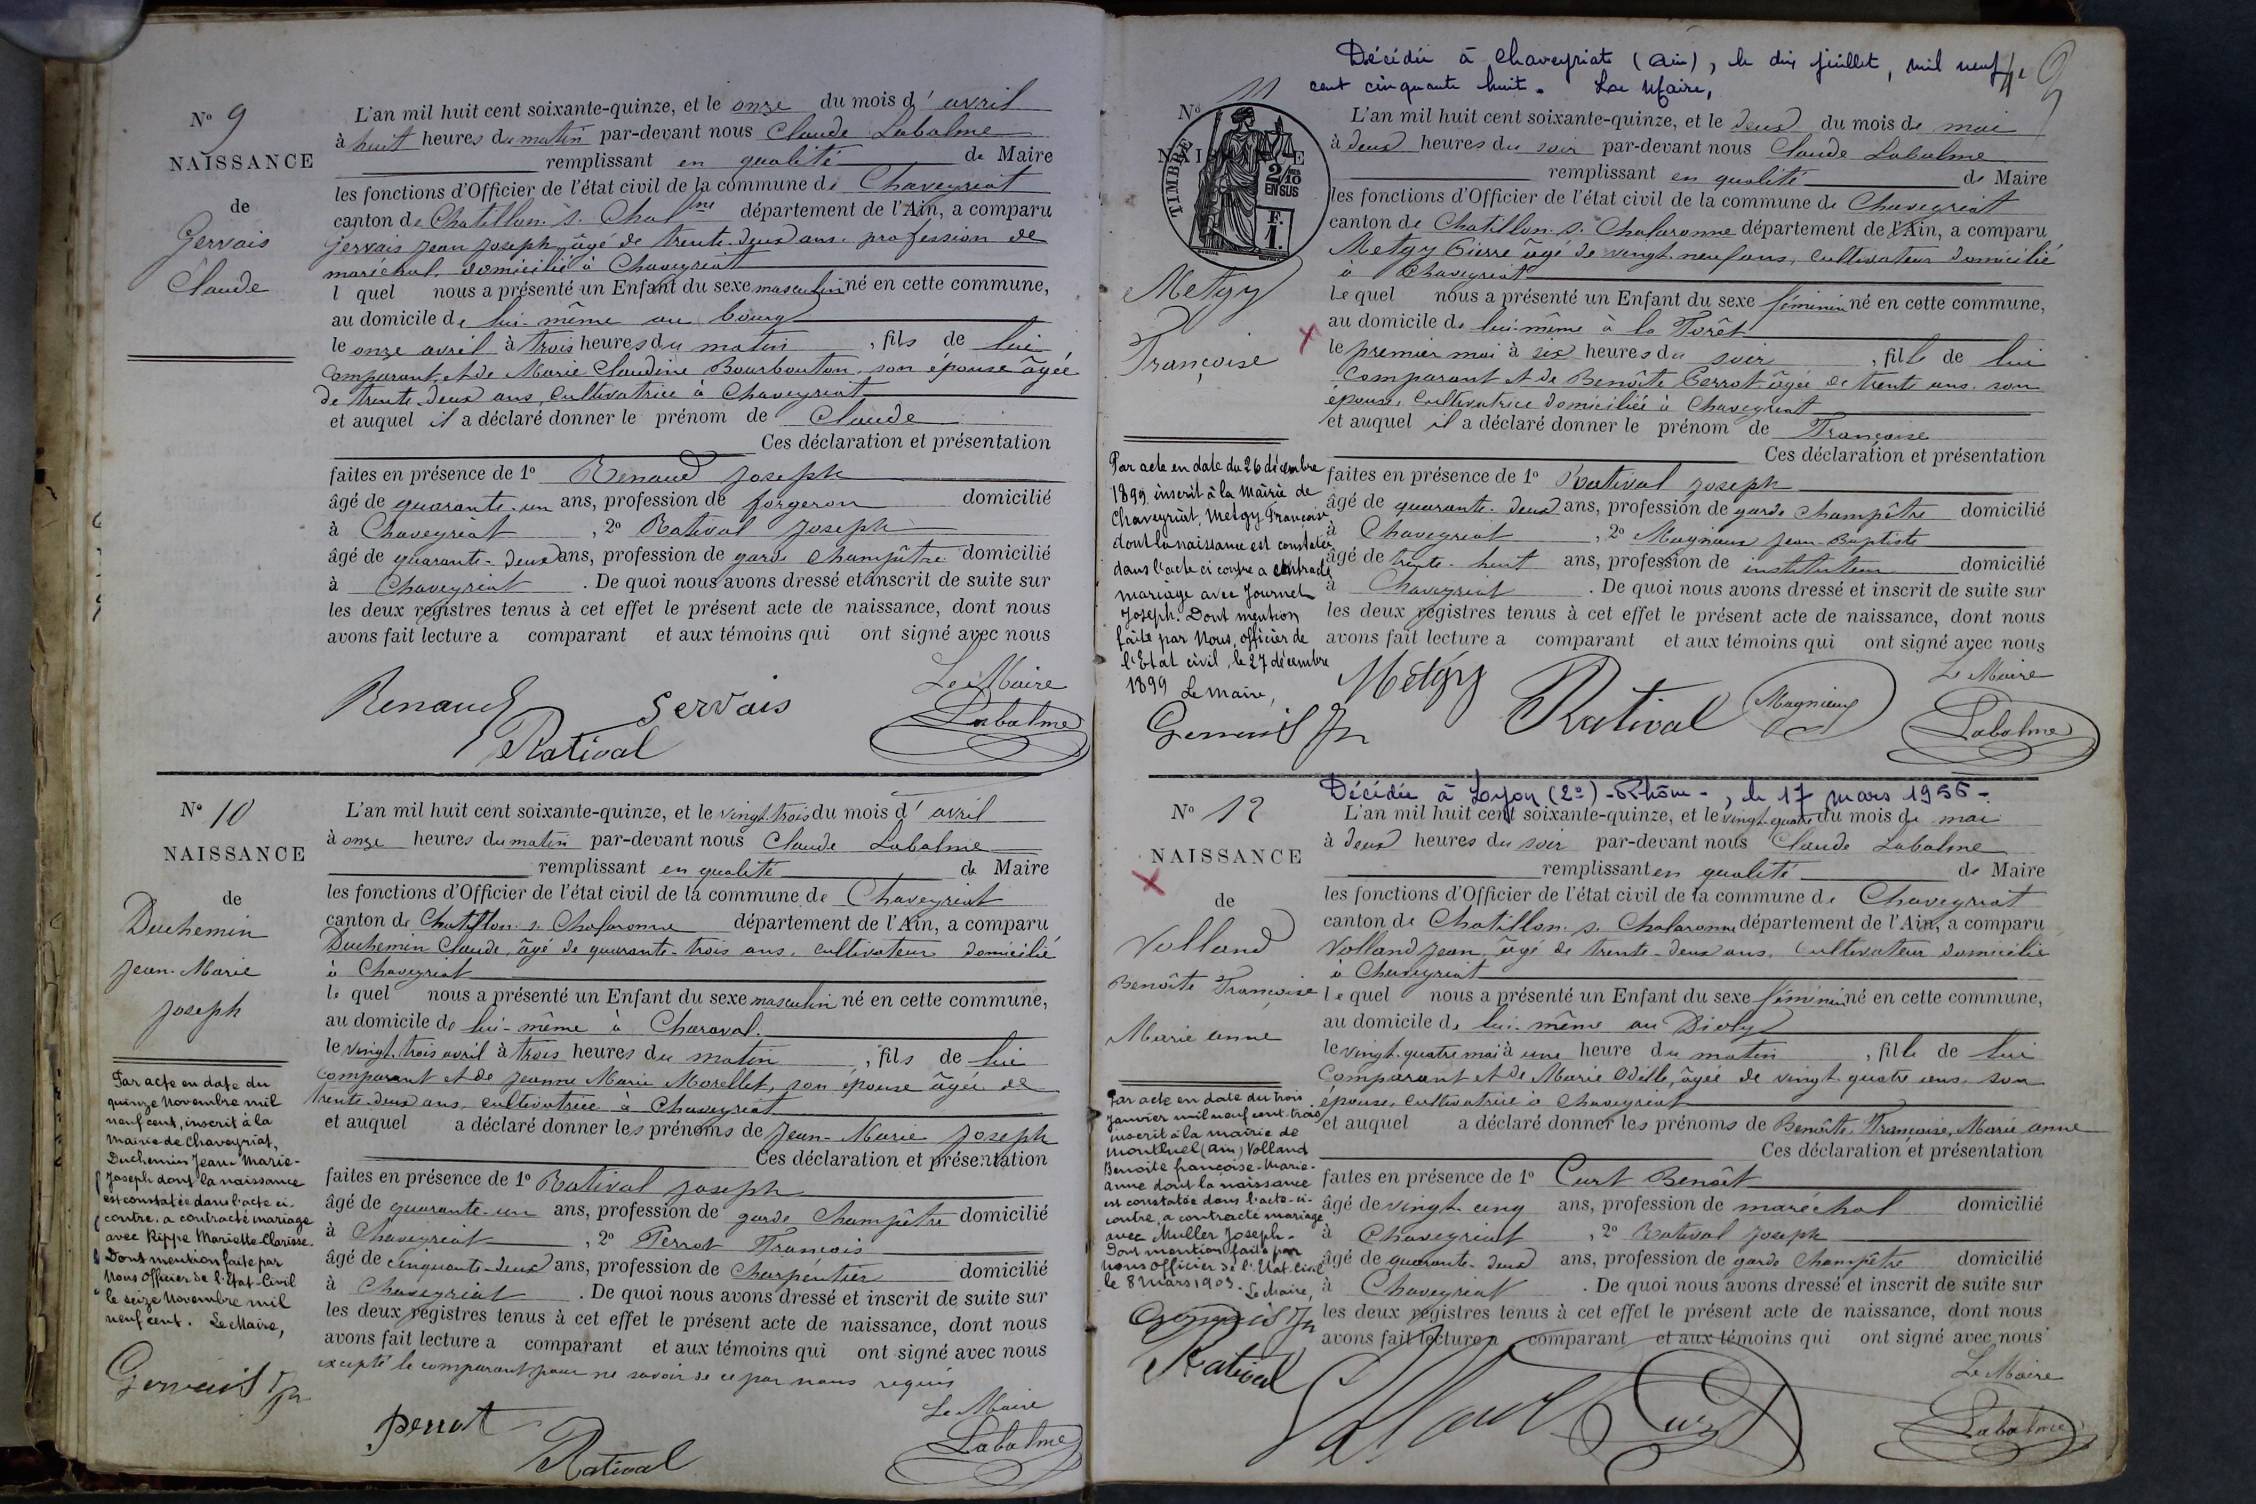 N° 9
NAISSANCE
de
Gervais
Claude
L'an mil huit cent soixante-quinze, et le onze du mois d' avril
à huit heures du matin par-devant nous Claude Labalme
remplissant en qualité de Maire
les fonctions d'Officier de l'état civil de la commune de Chaveyriat
canton de Chatillon s. Chalne département de l'Ain, a comparu
Gervais Jean Joseph, âgé de trente-deux ans, profession de
maréchal, domicilié à Chaveyriat
l quel nous a présenté un Enfant du sexe masculin né en cette commune,
au domicile de lui-même au bourg
le onze avril à trois heures du matin, fils de lui
comparant, et de Marie Claudine Bourbouton, son épouse âgée
de trente-deux ans, cultivatrice à Chaveyriat
et auquel il a déclaré donner le prénom de Claude
Ces déclaration et présentation
faites en présence de 1° Renaud Joseph
âgé de quarante-un ans, profession de forgeron domicilié
à Chaveyriat, 2° Ratival Joseph
âgé de quarante-deux ans, profession de garde champêtre domicilié
à Chaveyriat. De quoi nous avons dressé et inscrit de suite sur
les deux registres tenus à cet effet le présent acte de naissance, dont nous
avons fait lecture a comparant et aux témoins qui ont signé avec nous
Le Maire
Renaud Gervais Labalme
Ratival
N° 10
NAISSANCE
de
Duchemin
Jean-Marie
Joseph
Par acte en date du
quinze Novembre mil
neuf cent, inscrit à la
mairie de Chaveyriat,
Duchemin Jean Marie-
Joseph dont la naissance
est constatée dans l'acte ci-
contre, a contracté mariage
avec Rippe Mariette-Clarisse.
Dont mention faite par
Nous officier de l'Etat-Civil
le seize Novembre mil
neuf cent. Le Maire,
Gervais Jn
L'an mil huit cent soixante-quinze, et le vingt-trois du mois d' avril
à onze heures du matin par-devant nous Claude Labalme
remplissant en qualité de Maire
les fonctions d'Officier de l'état civil de la commune de Chaveyriat
canton de Chatillon s. Chalaronne département de l'Ain, a comparu
Duchemin Claude, âgé de quarante-trois ans, cultivateur domicilié
à Chaveyriat
le quel nous a présenté un Enfant du sexe masculin né en cette commune,
au domicile de lui-même à Charaval.
le vingt-trois avril à trois heures du matin, fils de lui
comparant et de Jeanne Marie Morellet, son épouse âgée de
trente-deux ans, cultivatrice à Chaveyriat
et auquel a déclaré donner les prénoms de Jean-Marie Joseph
Ces déclaration et présentation
faites en présence de 1° Ratival Joseph
âgé de quarante-un ans, profession de garde champêtre domicilié
à Chaveyriat, 2° Perrot François
âgé de cinquante-deux ans, profession de charpentier domicilié
à Chaveyriat. De quoi nous avons dressé et inscrit de suite sur
les deux registres tenus à cet effet le présent acte de naissance, dont nous
avons fait lecture a comparant et aux témoins qui ont signé avec nous
excepté le comparant pour ne savoir de ce par nous requis
Le Maire
Perrot Labalme
Ratival
Décédée à Chaveyriat (Ain), le dix juillet, mil neuf
cent cinquante huit. Le Maire,
9
N° 11
NAISSANCE
TIMBRE
2/10
EN SUS
F.
1.
Metgy
Françoise
Par acte en date du 26 décembre
1899 inscrit à la mairie de
Chaveyriat, Metgy Françoise
dont la naissance est constatée
dans l'acte ci contre a contracté
mariage avec Journet
Joseph. Dont mention
faite par Nous, officier de
l'Etat civil, le 27 décembre
1899 Le Maire,
Gervais Jn
L'an mil huit cent soixante-quinze, et le deux du mois de mai
à deux heures du soir par-devant nous Claude Labalme
remplissant en qualité de Maire
les fonctions d'Officier de l'état civil de la commune de Chaveyriat
canton de Chatillon s. Chalaronne département de l'Ain, a comparu
Metgy Pierre âgé de vingt-neuf ans, cultivateur domicilié
à Chaveyriat
le quel nous a présenté un Enfant du sexe féminin né en cette commune,
au domicile de lui-même à la Forêt
le premier mai à six heures du soir, fille de lui
comparant et de Benoîte Perrot âgée de trente ans, son
épouse, cultivatrice domiciliée à Chaveyriat
et auquel il a déclaré donner le prénom de Françoise
Ces déclaration et présentation
faites en présence de 1° Ratival Joseph
âgé de quarante-deux ans, profession de garde champêtre domicilié
à Chaveyriat, 2° Magnieux Jean-Baptiste
âgé de trente-huit ans, profession de instituteur domicilié
à Chaveyriat. De quoi nous avons dressé et inscrit de suite sur
les deux registres tenus à cet effet le présent acte de naissance, dont nous
avons fait lecture a comparant et aux témoins qui ont signé avec nous
Le Maire
Metgy Ratival Magnieux Labalme
Décédée à Lyon (2e) - Rhône -, le 17 mars 1956 -
N° 12
NAISSANCE
de
Volland
Benoîte Françoise
Marie anne
Par acte en date du trois
Janvier mil neuf cent trois
inscrit à la mairie de
Montluel (Ain) Volland
Benoîte françoise-Marie-
anne dont la naissance
est constatée dans l'acte-ci-
contre, a contracté mariage
avec Muller Joseph-
Dont mention faite par
nous officier de l'Etat Civil
le 8 Mars 1903. Le Maire,
Gervais Jn
L'an mil huit cent soixante-quinze, et le vingt-quatre du mois de mai
à deux heures du soir par-devant nous Claude Labalme
remplissant en qualité de Maire
les fonctions d'Officier de l'état civil de la commune de Chaveyriat
canton de Chatillon s. Chalaronne département de l'Ain, a comparu
Volland Jean, âgé de trente-deux ans, cultivateur domicilié
à Chaveyriat
le quel nous a présenté un Enfant du sexe féminin né en cette commune,
au domicile de lui-même au Dioly
le vingt-quatre mai à une heure du matin, fille de lui
comparant et de Marie Odille, âgée de vingt-quatre ans, son
épouse, cultivatrice à Chaveyriat
et auquel a déclaré donner les prénoms de Benoîte, Françoise, Marie anne
Ces déclaration et présentation
faites en présence de 1° Curt Benoît
âgé de vingt-cinq ans, profession de maréchal domicilié
à Chaveyriat, 2° Ratival Joseph
âgé de quarante-deux ans, profession de garde champêtre domicilié
à Chaveyriat. De quoi nous avons dressé et inscrit de suite sur
les deux registres tenus à cet effet le présent acte de naissance, dont nous
avons fait lecture a comparant et aux témoins qui ont signé avec nous
Le Maire
Ratival Volland Curt Labalme